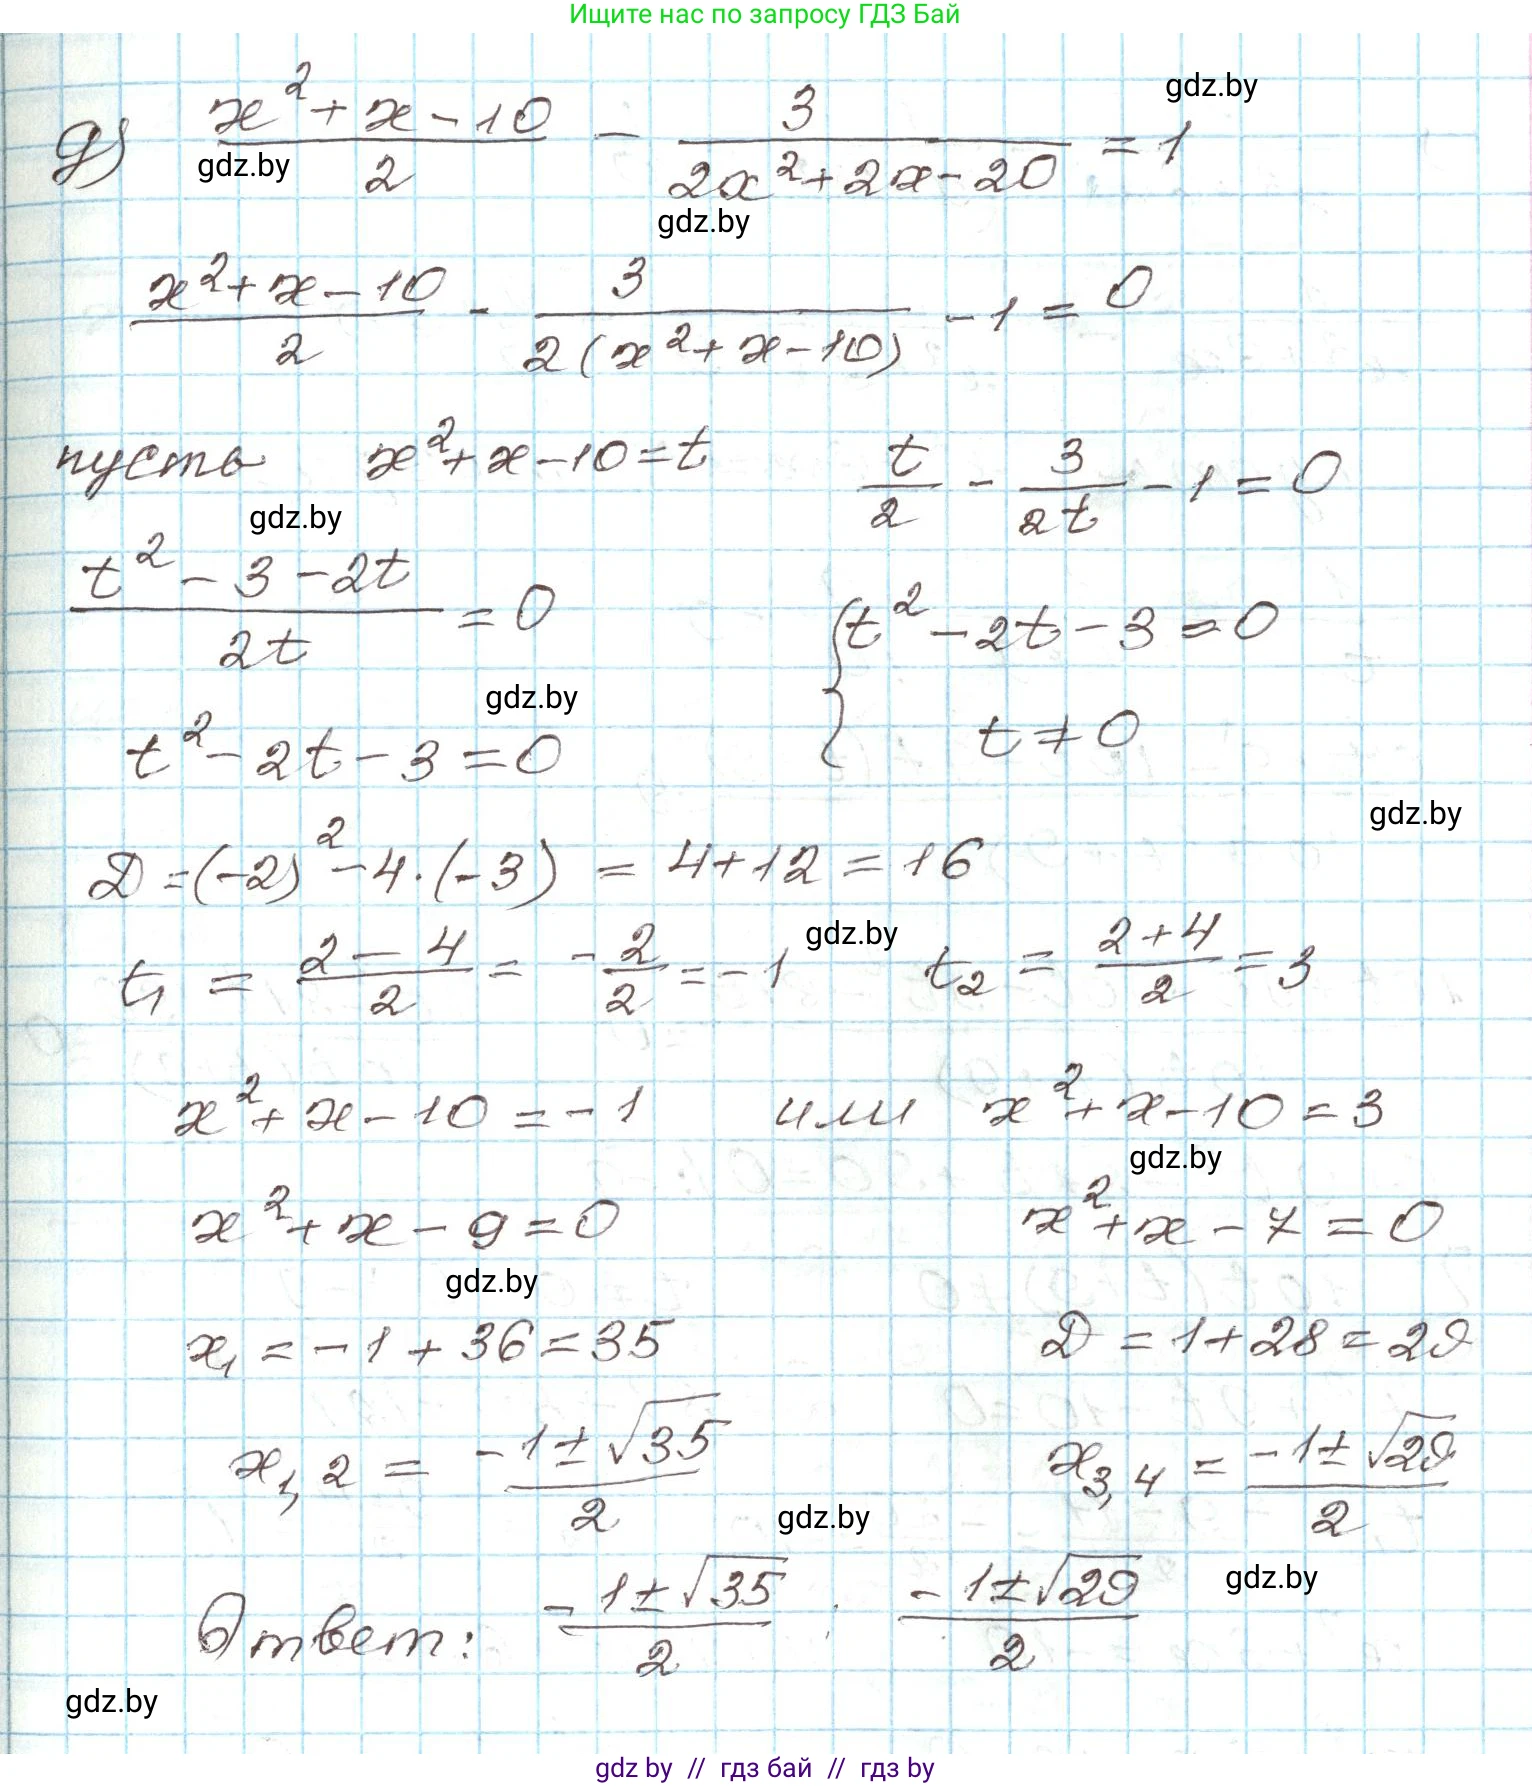 Ищите нас по запросу ГДЗ Бай
д) (x² + x - 10)/2 - 3/(2x² + 2x - 20) = 1
gdz.by
gdz.by
gdz.by
(x² + x - 10)/2 - 3/(2(x² + x - 10)) - 1 = 0
пусть x² + x - 10 = t t/2 - 3/(2t) - 1 = 0
gdz.by
(t² - 3 - 2t)/(2t) = 0 { t² - 2t - 3 = 0
t ≠ 0
gdz.by
t² - 2t - 3 = 0
gdz.by
D = (-2)² - 4 · (-3) = 4 + 12 = 16
gdz.by
t₁ = (2 - 4)/2 = -2/2 = -1 t₂ = (2 + 4)/2 = 3
x² + x - 10 = -1 или x² + x - 10 = 3
gdz.by
x² + x - 9 = 0 x² + x - 7 = 0
gdz.by
x₁ = -1 + 36 = 35 D = 1 + 28 = 29
x₁,₂ = (-1 ± √35)/2 x₃,₄ = (-1 ± √29)/2
gdz.by
gdz.by
Ответ: (-1 ± √35)/2 ; (-1 ± √29)/2
gdz.by
gdz by // гдз бай // gdz by